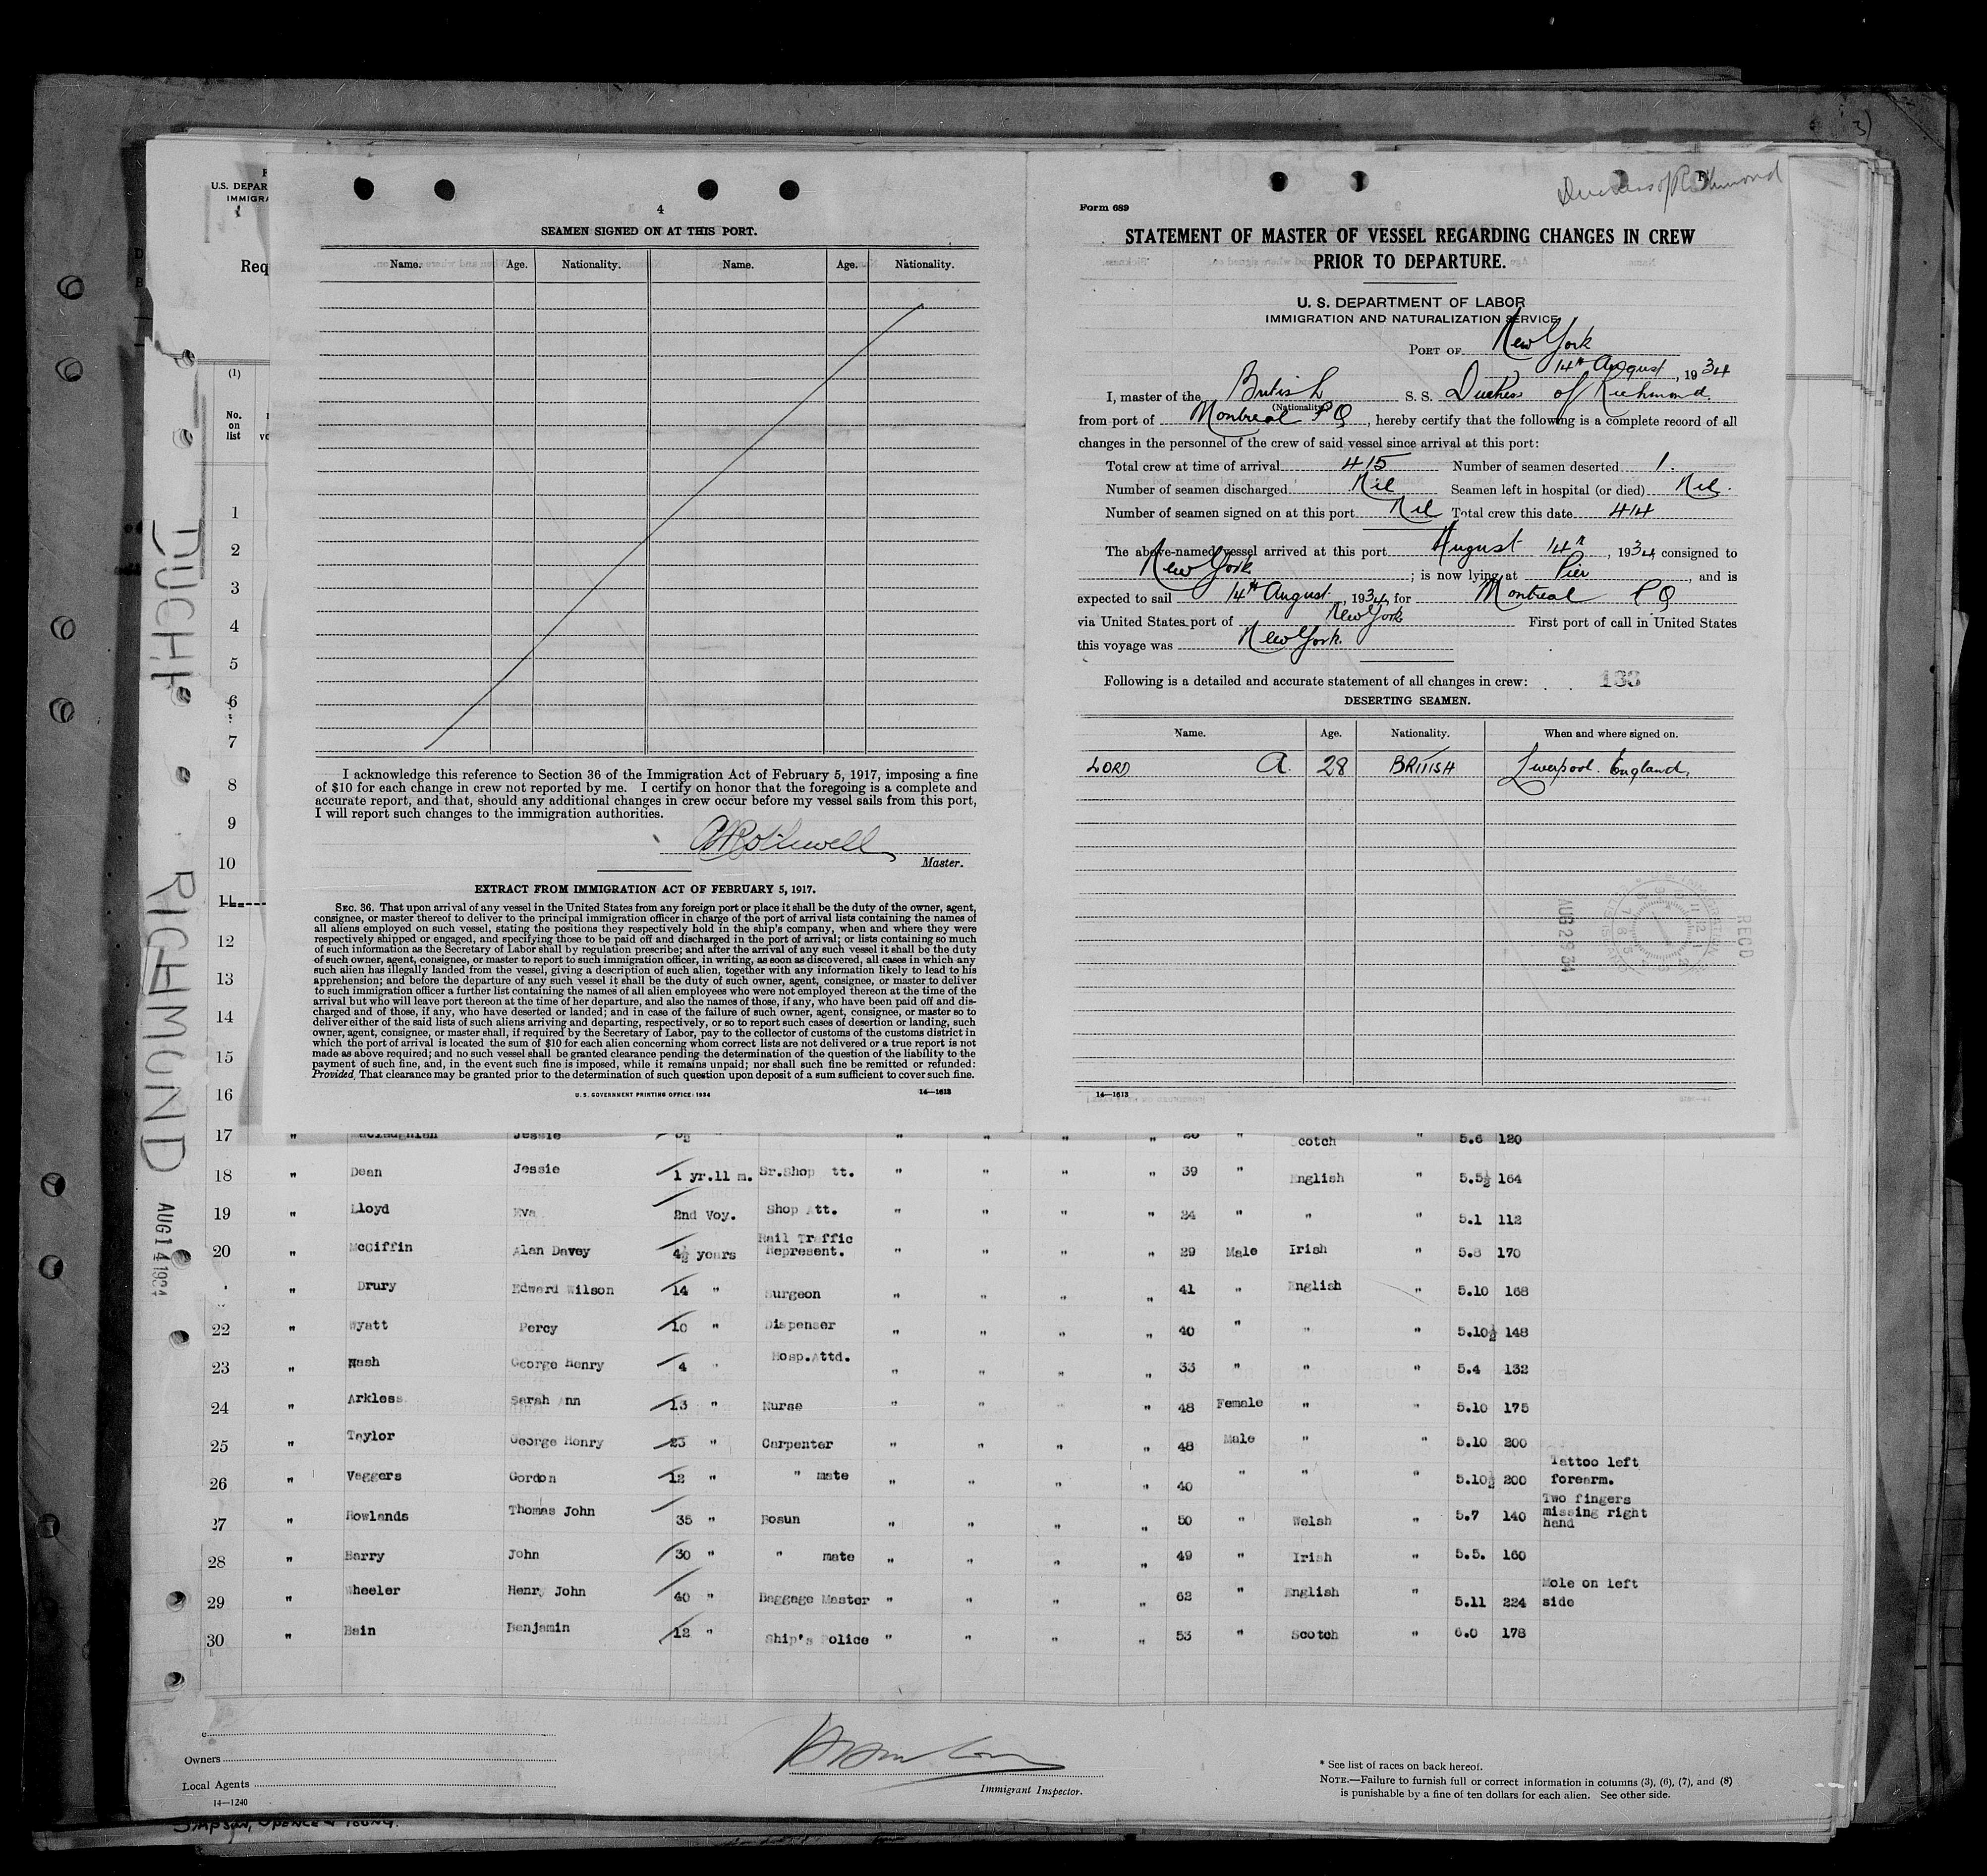 4
SEAMEN SIGNED ON AT THIS PORT.
Name. Age. Nationality. Name. Age. Nationality.
I acknowledge this reference to Section 36 of the Immigration Act of February 5, 1917, imposing a fine
of $10 for each change in crew not reported by me. I certify on honor that the foregoing is a complete and
accurate report, and that, should any additional changes in crew occur before my vessel sails from this port,
I will report such changes to the immigration authorities.
Rothwell
Master.
EXTRACT FROM IMMIGRATION ACT OF FEBRUARY 5, 1917.
SEC. 36. That upon arrival of any vessel in the United States from any foreign port or place it shall be the duty of the owner, agent,
consignee, or master thereof to deliver to the principal immigration officer in charge of the port of arrival lists containing the names of
all aliens employed on such vessel, stating the positions they respectively hold in the ship's company, when and where they were
respectively shipped or engaged, and specifying those to be paid off and discharged in the port of arrival; or lists containing so much
of such information as the Secretary of Labor shall by regulation prescribe; and after the arrival of any such vessel it shall be the duty
of such owner, agent, consignee, or master to report to such immigration officer, in writing, as soon as discovered, all cases in which any
such alien has illegally landed from the vessel, giving a description of such alien, together with any information likely to lead to his
apprehension; and before the departure of any such vessel it shall be the duty of such owner, agent, consignee, or master to deliver
to such immigration officer a further list containing the names of all alien employees who were not employed thereon at the time of the
arrival but who will leave port thereon at the time of her departure, and also the names of those, if any, who have been paid off and dis-
charged and of those, if any, who have deserted or landed; and in case of the failure of such owner, agent, consignee, or master so to
deliver either of the said lists of such aliens arriving and departing, respectively, or so to report such cases of desertion or landing, such
owner, agent, consignee, or master shall, if required by the Secretary of Labor, pay to the collector of customs of the customs district in
which the port of arrival is located the sum of $10 for each alien concerning whom correct lists are not delivered or a true report is not
made as above required; and no such vessel shall be granted clearance pending the determination of the question of the liability to the
payment of such fine, and, in the event such fine is imposed, while it remains unpaid; nor shall such fine be remitted or refunded:
Provided, That clearance may be granted prior to the determination of such question upon deposit of a sum sufficient to cover such fine.
U. S. GOVERNMENT PRINTING OFFICE: 1934 14—1613
Duchess of Richmond
Form 689
STATEMENT OF MASTER OF VESSEL REGARDING CHANGES IN CREW
PRIOR TO DEPARTURE.
U. S. DEPARTMENT OF LABOR
IMMIGRATION AND NATURALIZATION SERVICE
PORT OF New York
14th August, 1934
I, master of the British S. S. Duchess of Richmond
(Nationality)
from port of Montreal PQ, hereby certify that the following is a complete record of all
changes in the personnel of the crew of said vessel since arrival at this port:
Total crew at time of arrival 415 Number of seamen deserted 1.
Number of seamen discharged Nil Seamen left in hospital (or died) Nil.
Number of seamen signed on at this port Nil Total crew this date 414
The above-named vessel arrived at this port August 14th, 1934, consigned to
New York; is now lying at Pier, and is
expected to sail 14th August, 1934, for Montreal PQ
via United States port of New York First port of call in United States
this voyage was New York.
Following is a detailed and accurate statement of all changes in crew: 133
DESERTING SEAMEN.
Name. Age. Nationality. When and where signed on.
LORD A. 28 BRITISH Liverpool. England.
RECD
AUG 29 34
14—1613
U.S. DEPAR
IMMIGRA
Req
(1)
No. on list
1
2
3
4
5
6
7
8
9
10
11
12
13
14
15
16
DUCHE RICHMOND AUG 14 1934
17 " Jessie " " " " " cotch " 5.6 120
18 " Dean Jessie 1 yr.11 m. Sr.Shop tt. " " " " 39 " nglish " 5.5½ 164
19 " Lloyd Eva 2nd Voy. Shop Att. " " " " 24 " " " 5.1 112
20 " McGiffin Alan Davey 4½ years Rail Traffic Represent. " " " " 29 Male Irish " 5.8 170
" Drury Edward Wilson 14 " Surgeon " " " " 41 " English " 5.10 168
22 " Wyatt Percy 10 " Dispenser " " " " 40 " " " 5.10½ 148
23 " Nash George Henry 4 " Hosp.Attd. " " " " 33 " " " 5.4 132
24 " Arkless Sarah Ann 13 " Nurse " " " " 48 Female " " 5.10 175
25 " Taylor George Henry 23 " Carpenter " " " " 48 Male " " 5.10 200
26 " Veggers Gordon 12 " " mate " " " " 40 " " " 5.10½ 200 Tattoo left forearm.
27 " Rowlands Thomas John 35 " Bosun " " " " 50 " Welsh " 5.7 140 Two fingers missing right hand
28 " Barry John 30 " " mate " " " " 49 " Irish " 5.5. 160
29 " Wheeler Henry John 40 " Baggage Master " " " " 62 " English " 5.11 224 Mole on left side
30 " Bain Benjamin 12 " Ship's Police " " " " 53 " Scotch " 6.0 178
Owners
Local Agents
14—1240
Immigrant Inspector.
* See list of races on back hereof.
NOTE.—Failure to furnish full or correct information in columns (3), (6), (7), and (8)
is punishable by a fine of ten dollars for each alien. See other side.
SIMPSON, SPENCE & YOUNG.